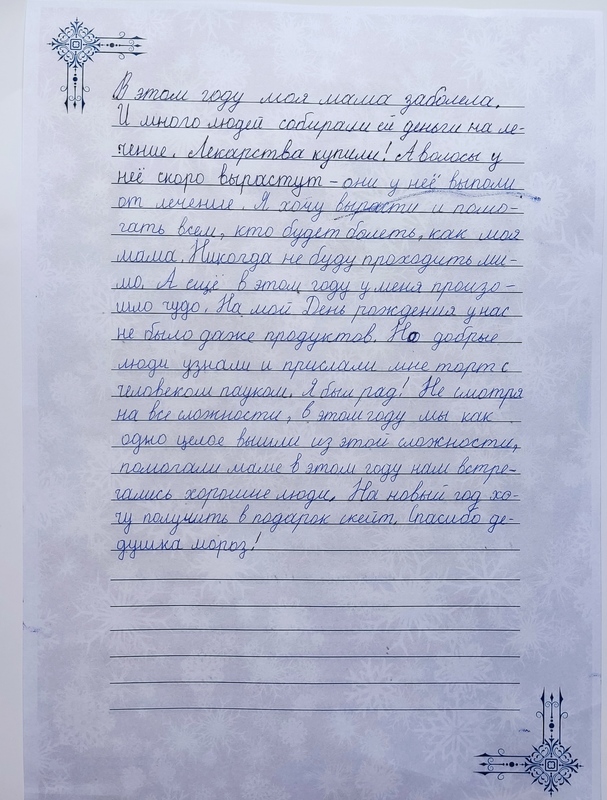 В этом году моя мама заболела.
И много людей собирали ей деньги на ле-
чение. Лекарства купили! А волосы у
неё скоро вырастут - они у неё выпали
от лечения. Я хочу вырасти и помо-
гать всем, кто будет болеть, как моя
мама. Никогда не буду проходить ми-
мо. А ещё в этом году у меня произо-
шло чудо. На мой День рождения у нас
не было даже продуктов. Но добрые
люди узнали и прислали мне торт с
человеком пауком. Я был рад! Не смотря
на все сложности, в этом году мы как
одно целое вышли из этой сложности,
помогали маме в этом году нам встре-
гались хорошие люди. На новый год хо-
чу получить в подарок скейт. Спасибо де-
душка мороз!